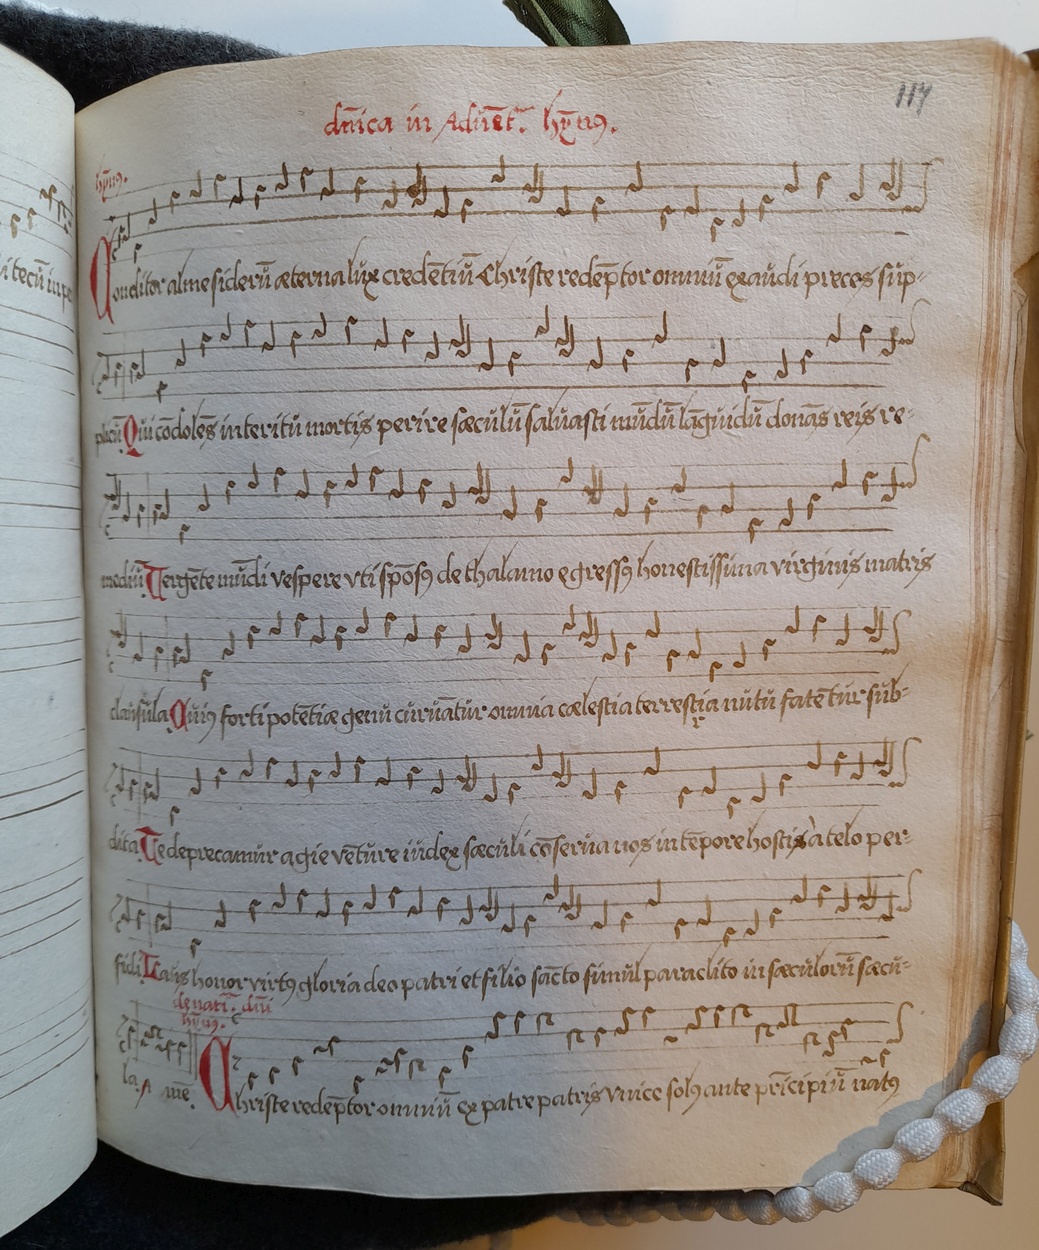 117
dn̄ica in Aduēt. hȳnꝰ.
hȳnꝰ.
Conditor alme siderū æterna lux credētiū Christe redēptor omniū exaudi preces sup-
plicū Qui cōdolēs interitū mortis perire sæculū saluasti mūdū lāguidū donās reis re-
mediū Vergēte mūdi vespere vti spōsꝰ de thalamo egressꝰ honestissima virginis matris
clausula Cuiꝰ forti potētiæ genu curuātur omnia cælestia terrestria nutu fatētur sub-
dita Te deprecamur agie vēture iudex sæculi cōserua nos in tēpore hostis à telo per-
fidi Laus honor virtꝰ gloria deo patri et filio sācto simul paraclito in sæculorū sæcu-
de nati. dn̄i
hȳnꝰ.
la. A mē. Christe redēptor omniū ex patre patris vnice solꝰ ante prīcipiū natꝰ